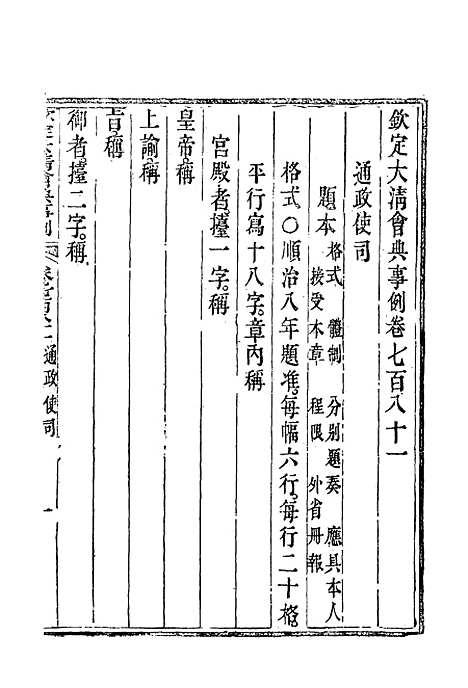 欽定大清會典事例卷七百八十一
通政使司
題本格式 體制 分別題奏 應具本人
接受本章 程限 外省冊報
格式○順治八年題准。每幅六行。每行二十格。
平行寫十八字。章內稱
宮殿者。擡一字。稱
皇帝。稱
上諭。稱
旨。稱
御者。擡二字。稱
欽定大清會典事例 卷七百八十一 通政使司 一